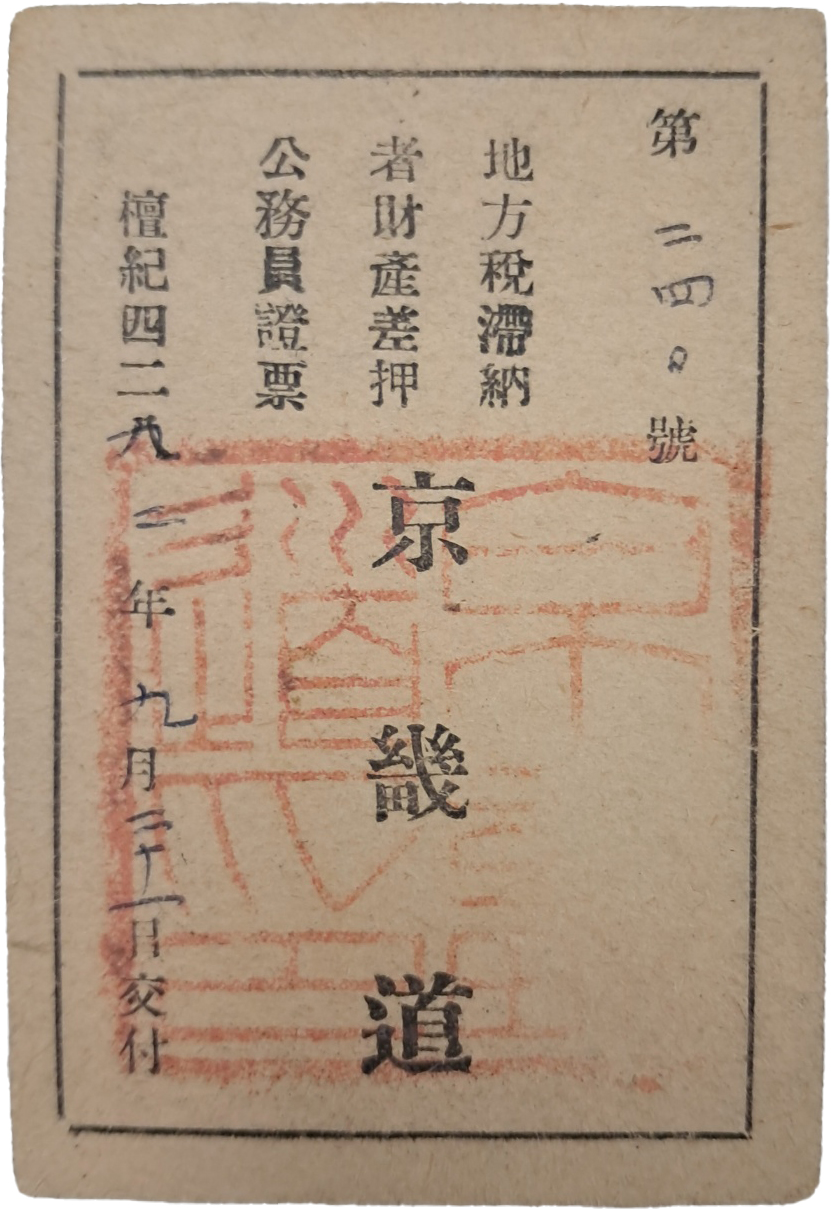 第二四〇號
地方稅滯納
者財產差押
公務員證票
京畿道
檀紀四二八二年九月二十一日交付